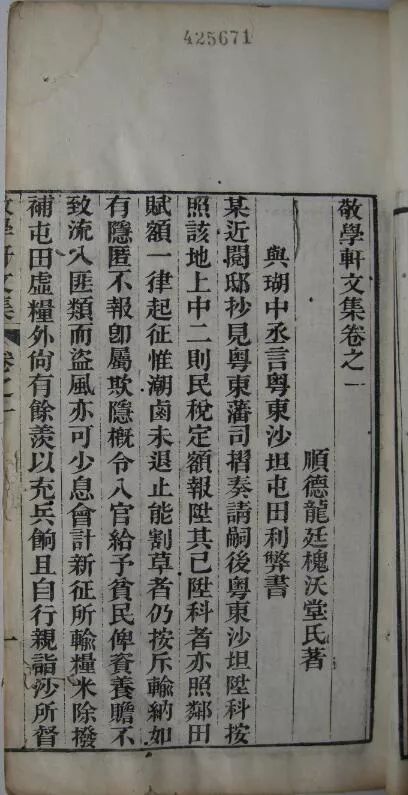 425671
敬學軒文集卷之一
順德龍廷槐沃堂氏著
與瑚中丞言粵東沙坦屯田利弊書
某近閱邸抄見粵東藩司摺奏請嗣後粵東沙坦陞科按
照該地上中二則民稅定額報陞其已陞科者亦照鄰田
賦額一律起征惟潮鹵未退止能割草者仍按斥輸納如
有隱匿不報卽屬欺隱槪令入官給予貧民俾資養贍不
致流入匪類而盜風亦可少息會計新征所輸糧米除撥
補屯田虛糧外尙有餘羨以充兵餉且自行親詣沙所督
敬學軒文集
卷之一
一